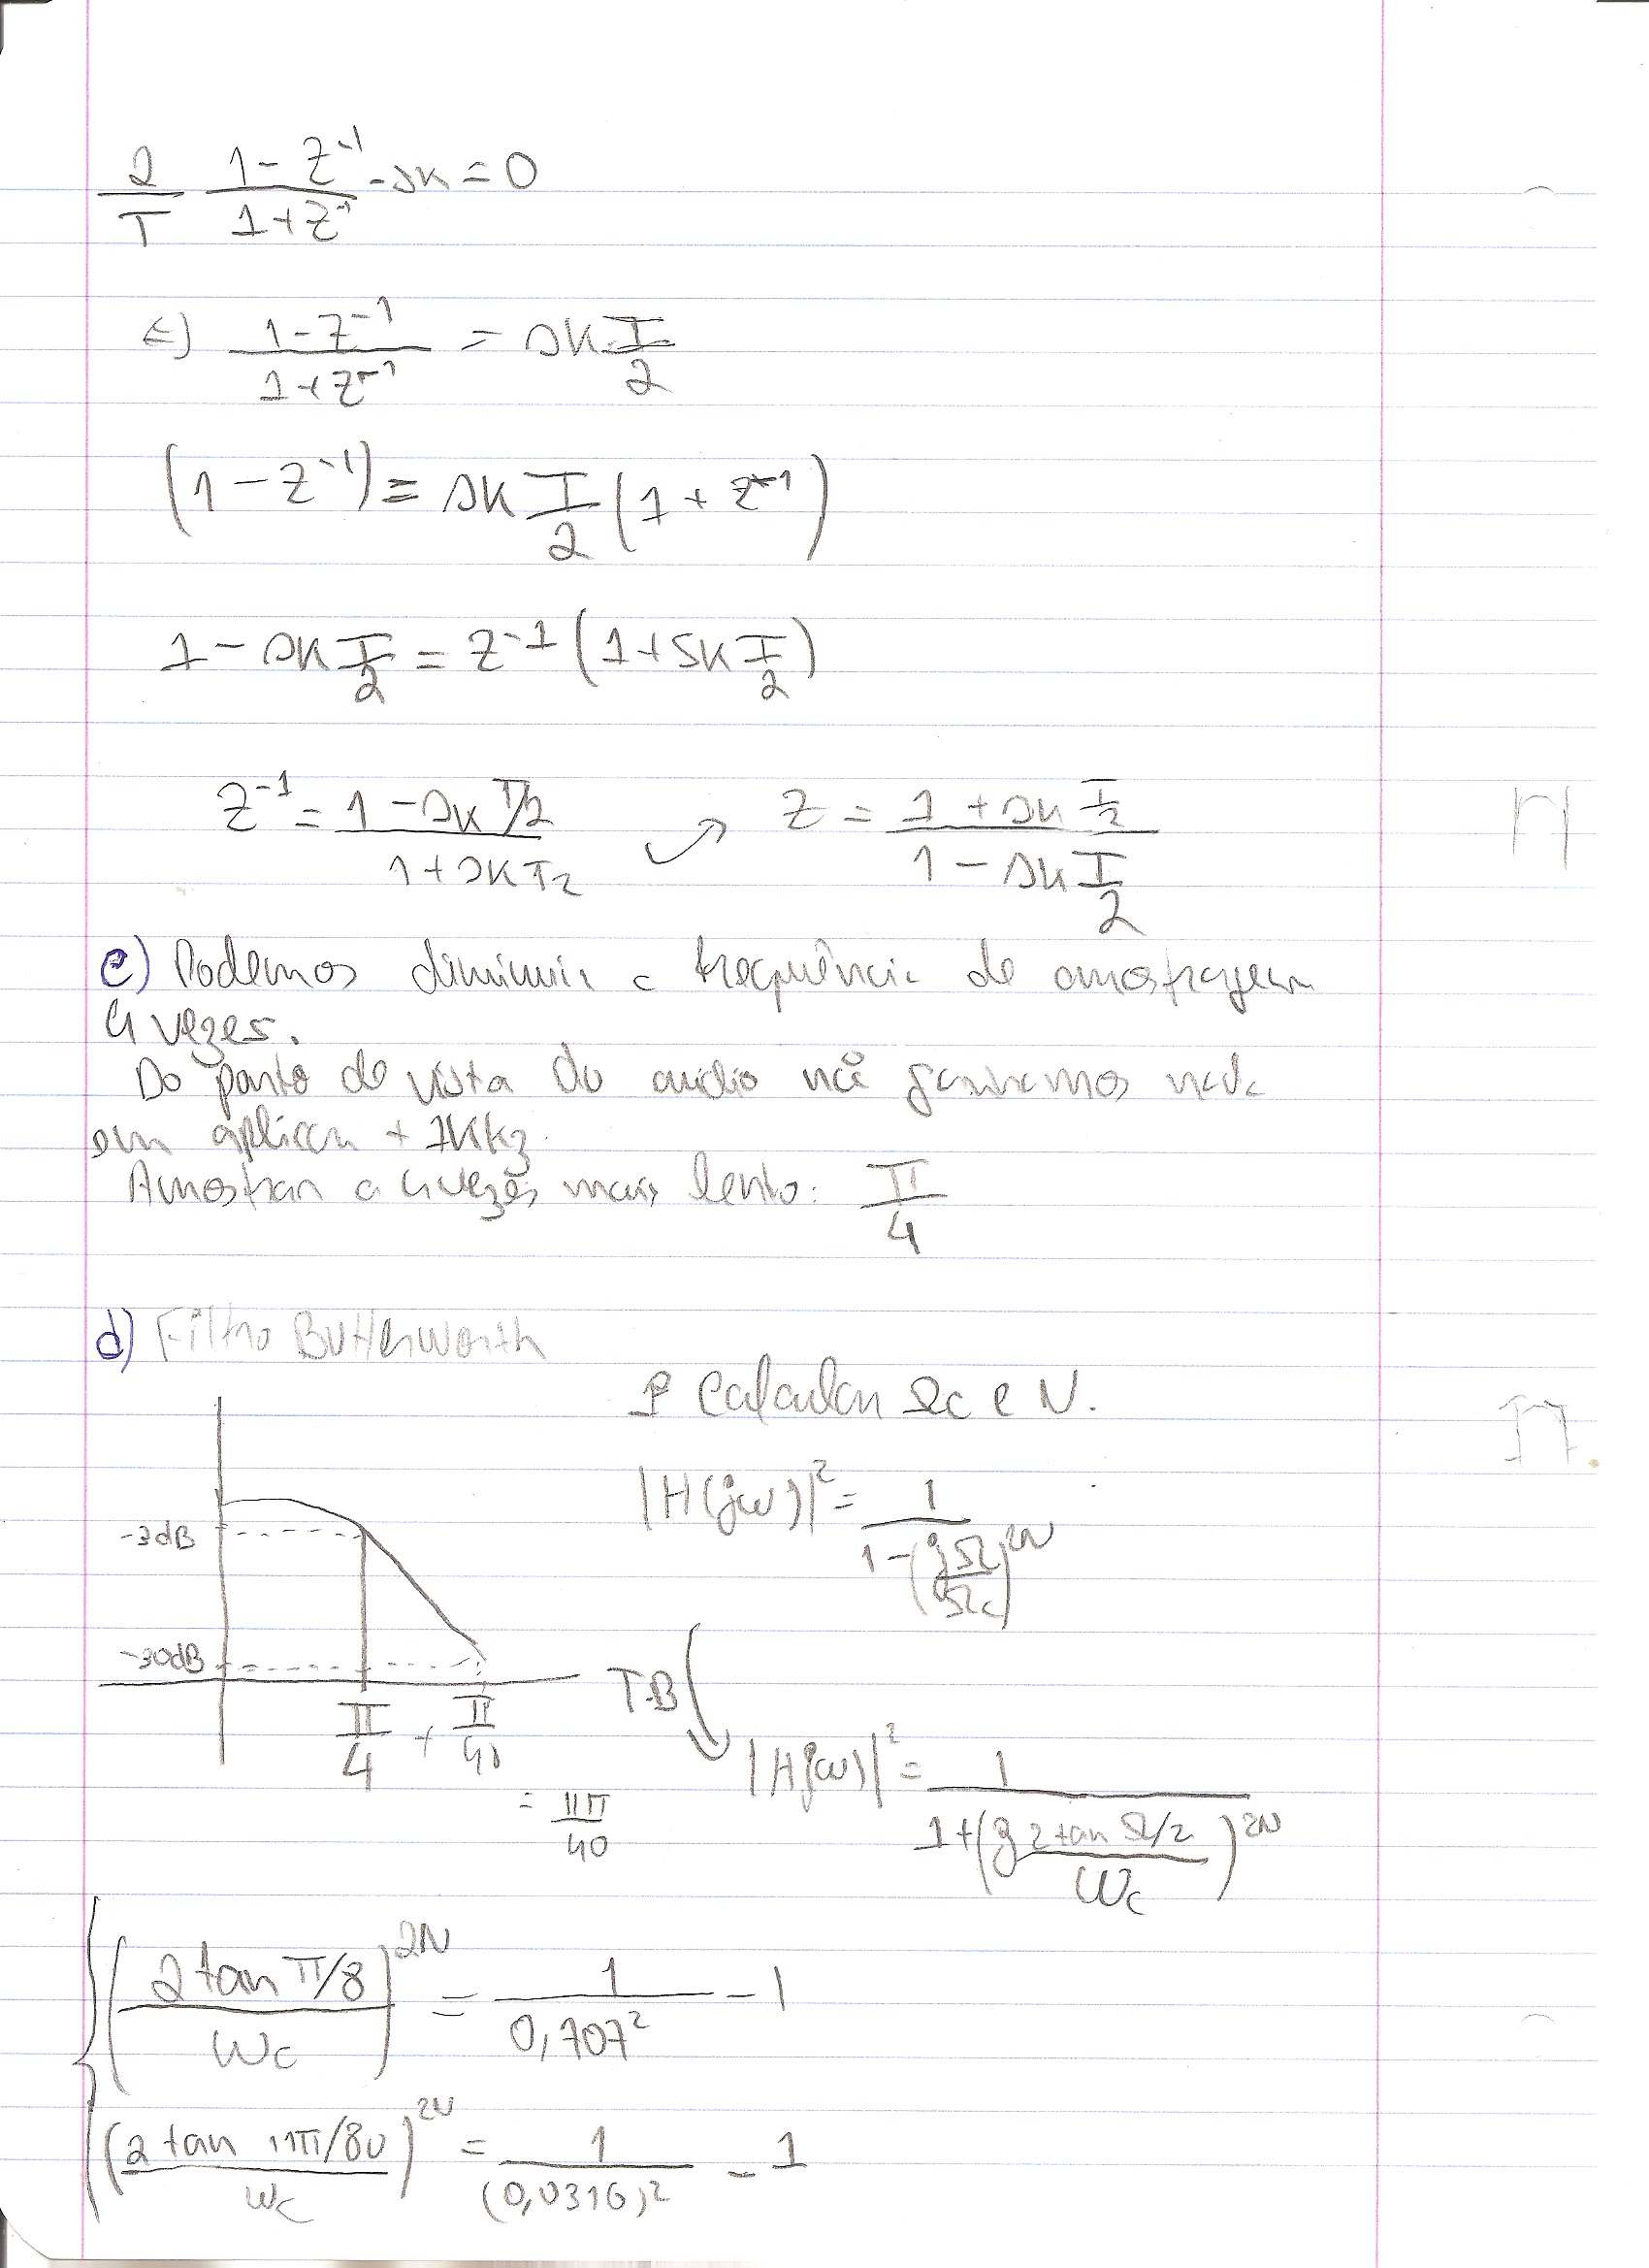 2/T (1 - z^-1)/(1 + z^-1) - sk = 0
⇔ (1 - z^-1)/(1 + z^-1) = sk T/2
(1 - z^-1) = sk T/2 (1 + z^-1)
1 - sk T/2 = z^-1 (1 + sk T/2)
z^-1 = (1 - sk T/2)/(1 + sk T2) → z = (1 + sk T/2)/(1 - sk T/2)
c) Podemos diminuir a frequência de amostragem
4 vezes.
Do ponto de vista do audio não ganhamos nada
em aplicar + 1Kkz.
Amostrar a 4 vezes mais lento: π/4
d) Filtro Butterworth
1º Calcular Ωc e N.
|H(jω)|² = 1/(1 - (jΩ/Ωc)^2N)
-3dB
-30dB
π/4 + π/40
= 11π/40
T.B
|H(jω)|² = 1/(1 + (j 2 tan Ω/2 / ωc)^2N)
(2 tan π/8 / ωc)^2N = 1/0,707² - 1
(2 tan 11π/80 / ωc)^2N = 1/(0,0316)² - 1